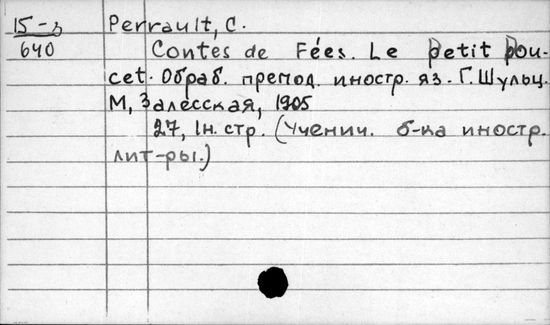 15-3 Perrault, C.
640 Contes de Fées. Le Petit Pou-
cet. Обраб. препод. иностр. яз. Г. Шульц.
М, Залесская, 1905
27, 1н. стр. (Ученич. б-ка иностр.
лит-ры.)